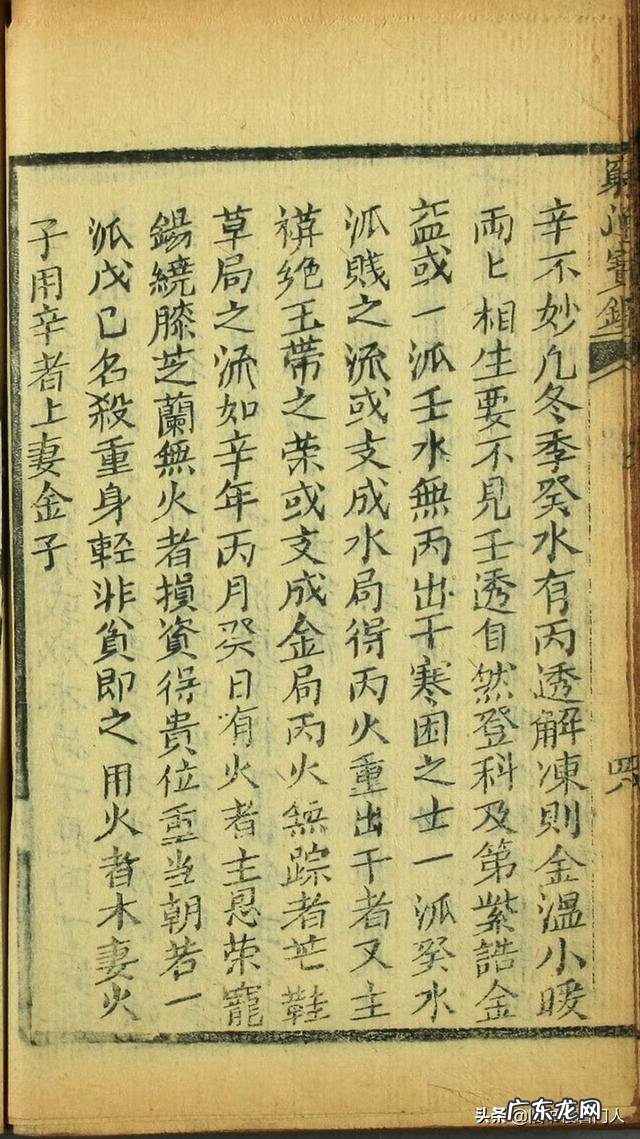 辛不妙凢冬季癸水有丙透解凍則金温小暖
両匕相生要不見壬透自然登科及第紫誥金
盃或一派壬水無丙出干寒困之士一派癸水
派賤之流或支成水局得丙火重出干者又主
襟绝玉帶之荣或支成金局丙火無踪者芒鞋
草局之流如辛年丙月癸日有火者主恩荣寵
錫繞膝芝蘭無火者損資得貴位重当朝若一
派戊己名殺重身輕非貧即之用火者木妻火
子用辛者上妻金子
寳
四
头条
门人
广东龙网